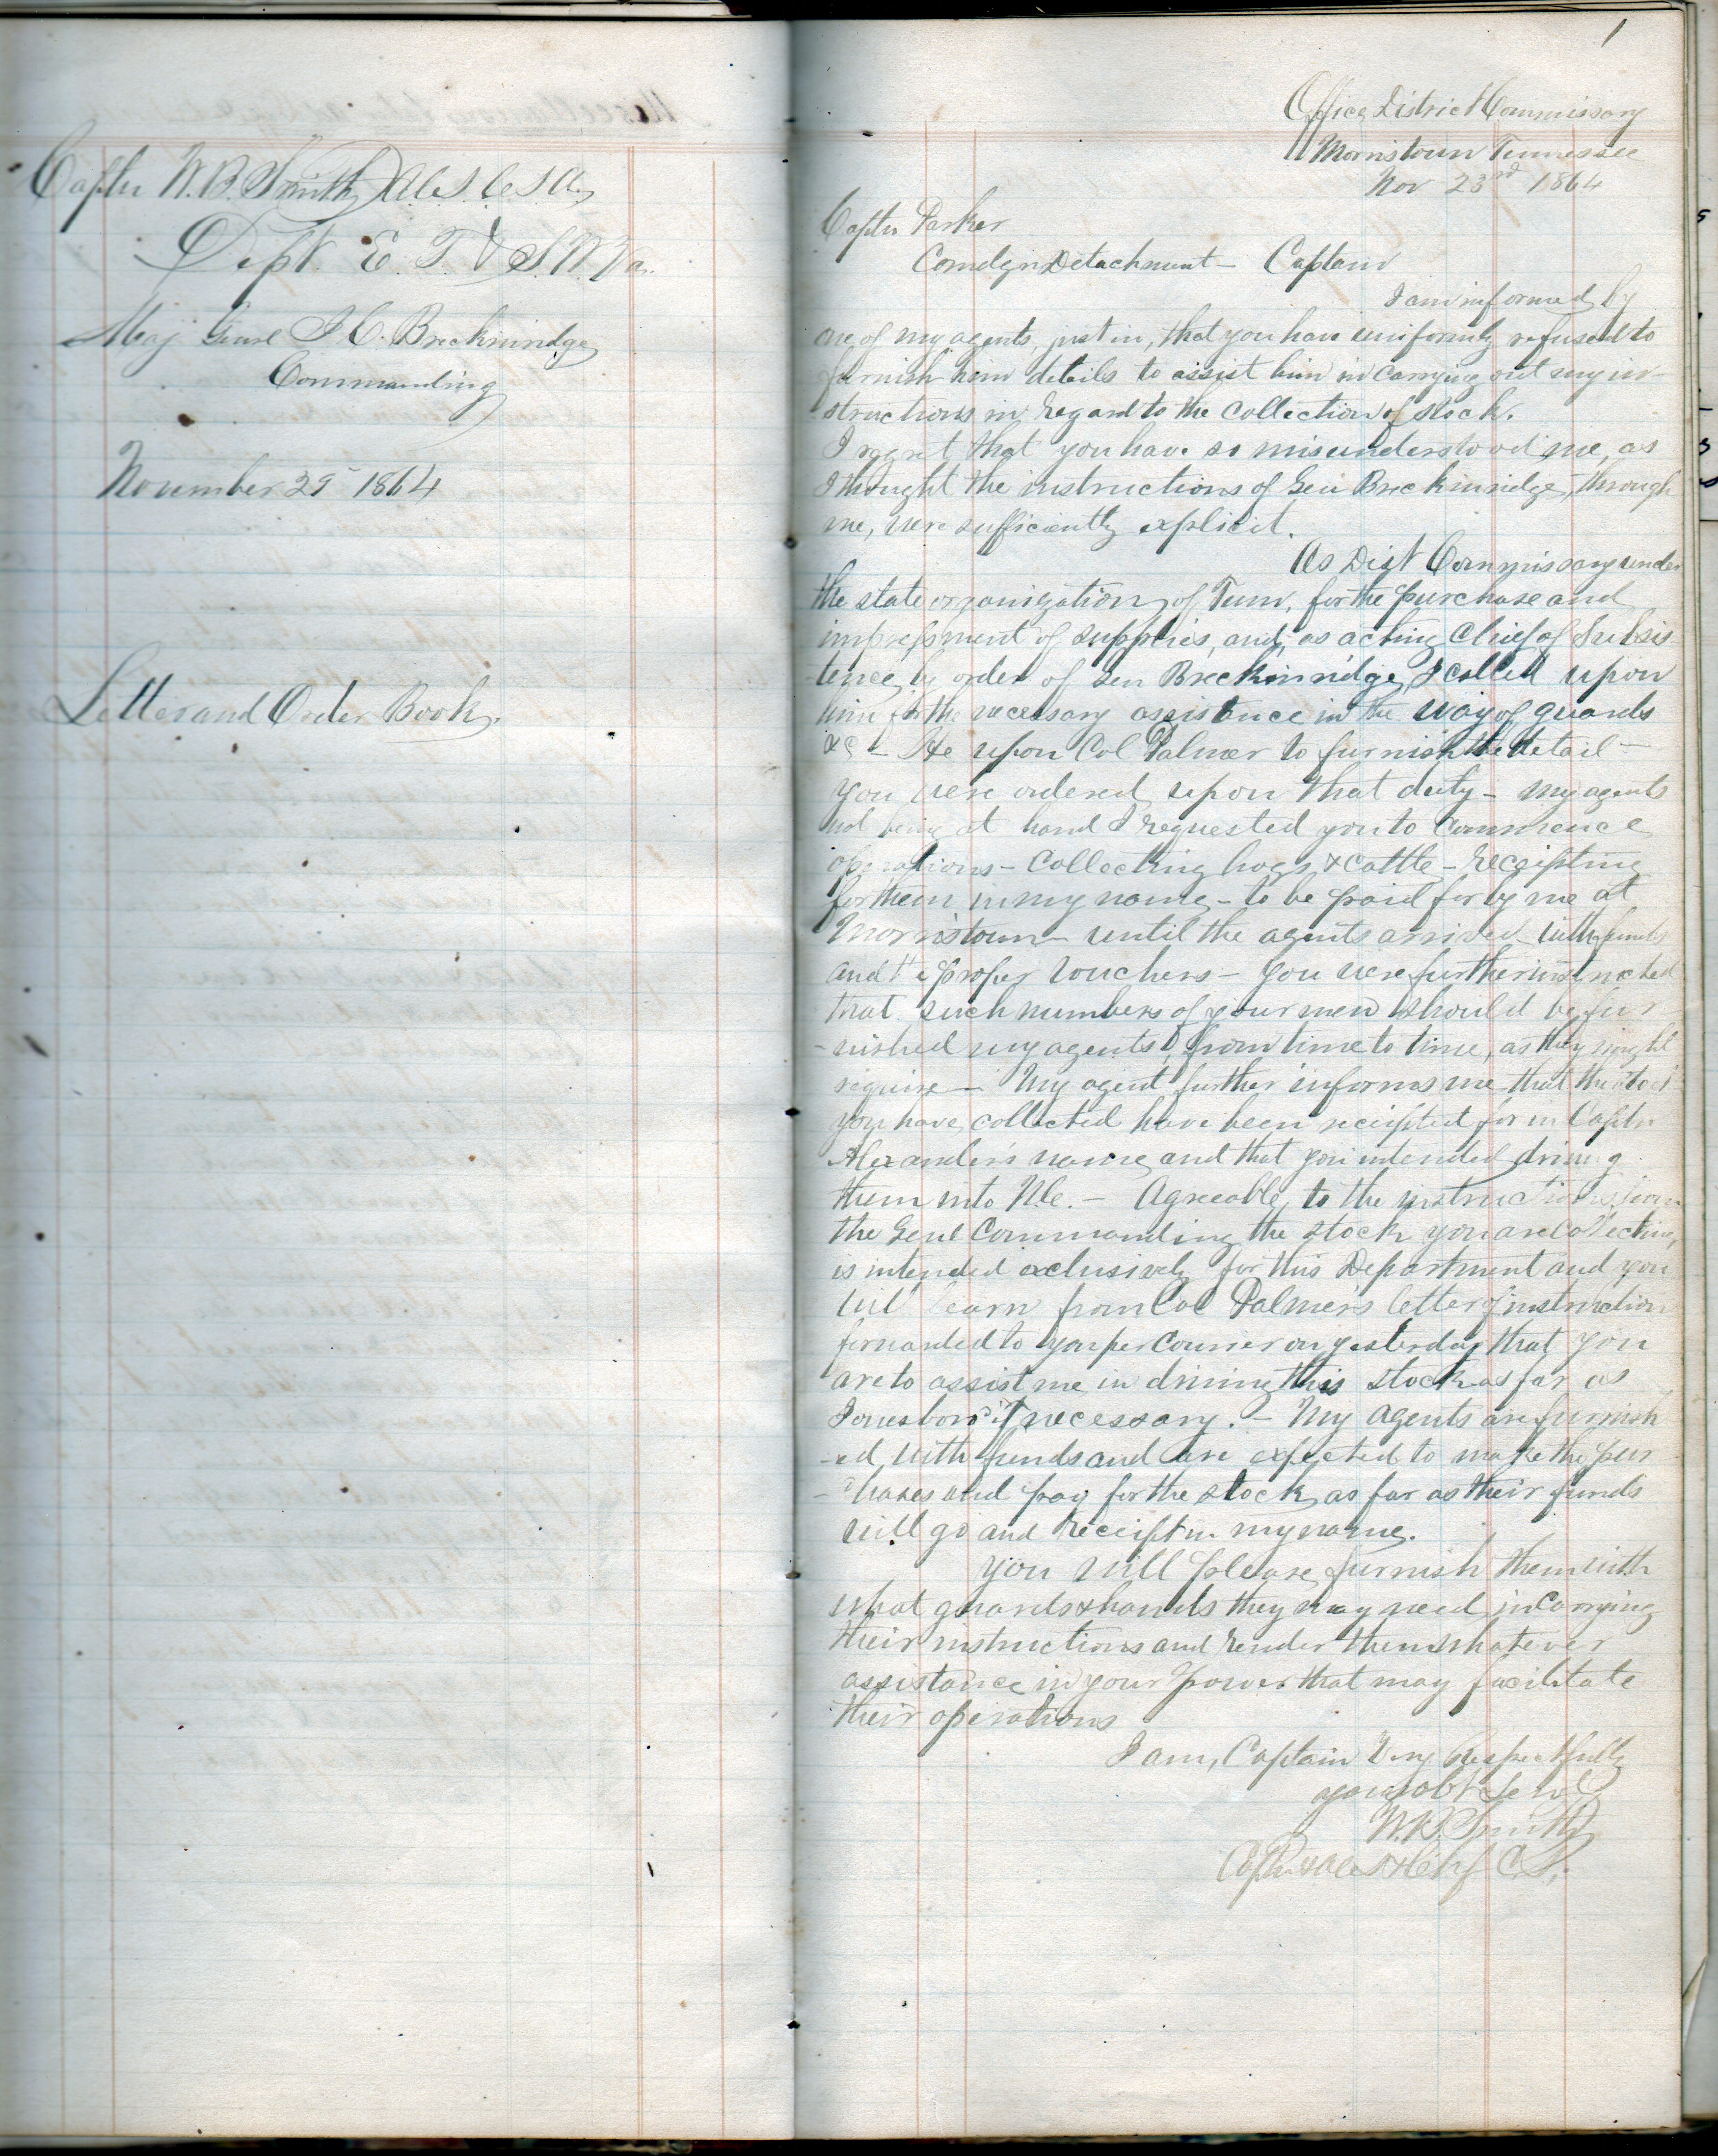 Captn W. B. Smith A.C.S. C.S.A.
Dept. E. T. & S. W. Va.
Maj Genl J. C. Breckinridge
Commanding
November 25 1864
Letter and Order Book.
1
Office District Commissary
Morristown Tennessee
Nov 23rd 1864
Captn Parker
Comdg Detachment – Captain
I am informed by
one of my agents, just in, that you have uniformly refused to
furnish him details to assist him in carrying out my in-
structions in regard to the collection of stock.
I regret that you have so misunderstood me, as
I thought the instructions of Gen Breckinridge, through
me, were sufficiently explicit.
As Dist Commissary under
the state organization of Tenn, for the purchase and
impressment of supplies, and, as acting Chief of Subsis-
-tence, by order of Gen Breckinridge, I called upon
him for the necessary assistance in the way of guards
&c – He upon Col Palmer to furnish the detail –
you were ordered upon that duty – my agents
not being at hand I requested you to commence
operations – Collecting hogs & cattle – receipting
for them in my name – to be paid for by me at
Morristown – until the agents arrived with funds
and the proper vouchers – you were further instructed
that such numbers of your men should be fur-
-nished my agents, from time to time, as they might
require – My agent further informs me that the stock
you have collected have been receipted for in Captn
Alexander's name, and that you intended driving
them into N.C. – Agreeable, to the instructions from
the Genl Commanding the stock you are collecting,
is intended exclusively for this Department and you
will learn from Col Palmer's letter of instruction
forwarded to you per Courier on yesterday that you
are to assist me in driving this stock as far as
Jonesboro if necessary. – My agents are furnish
-ed, with funds and are expected to make the pur
-chases and pay for the stock, as far as their funds
will go and receipt in my name.
You will please furnish them with
what guards & hands they may need in carrying
their instructions and render them whatever
assistance in your power that may facilitate
their operations
I am, Captain Very Respectfully
your obt Servt
W. B. Smith
Captn & A.C.S. & Chf C.S.